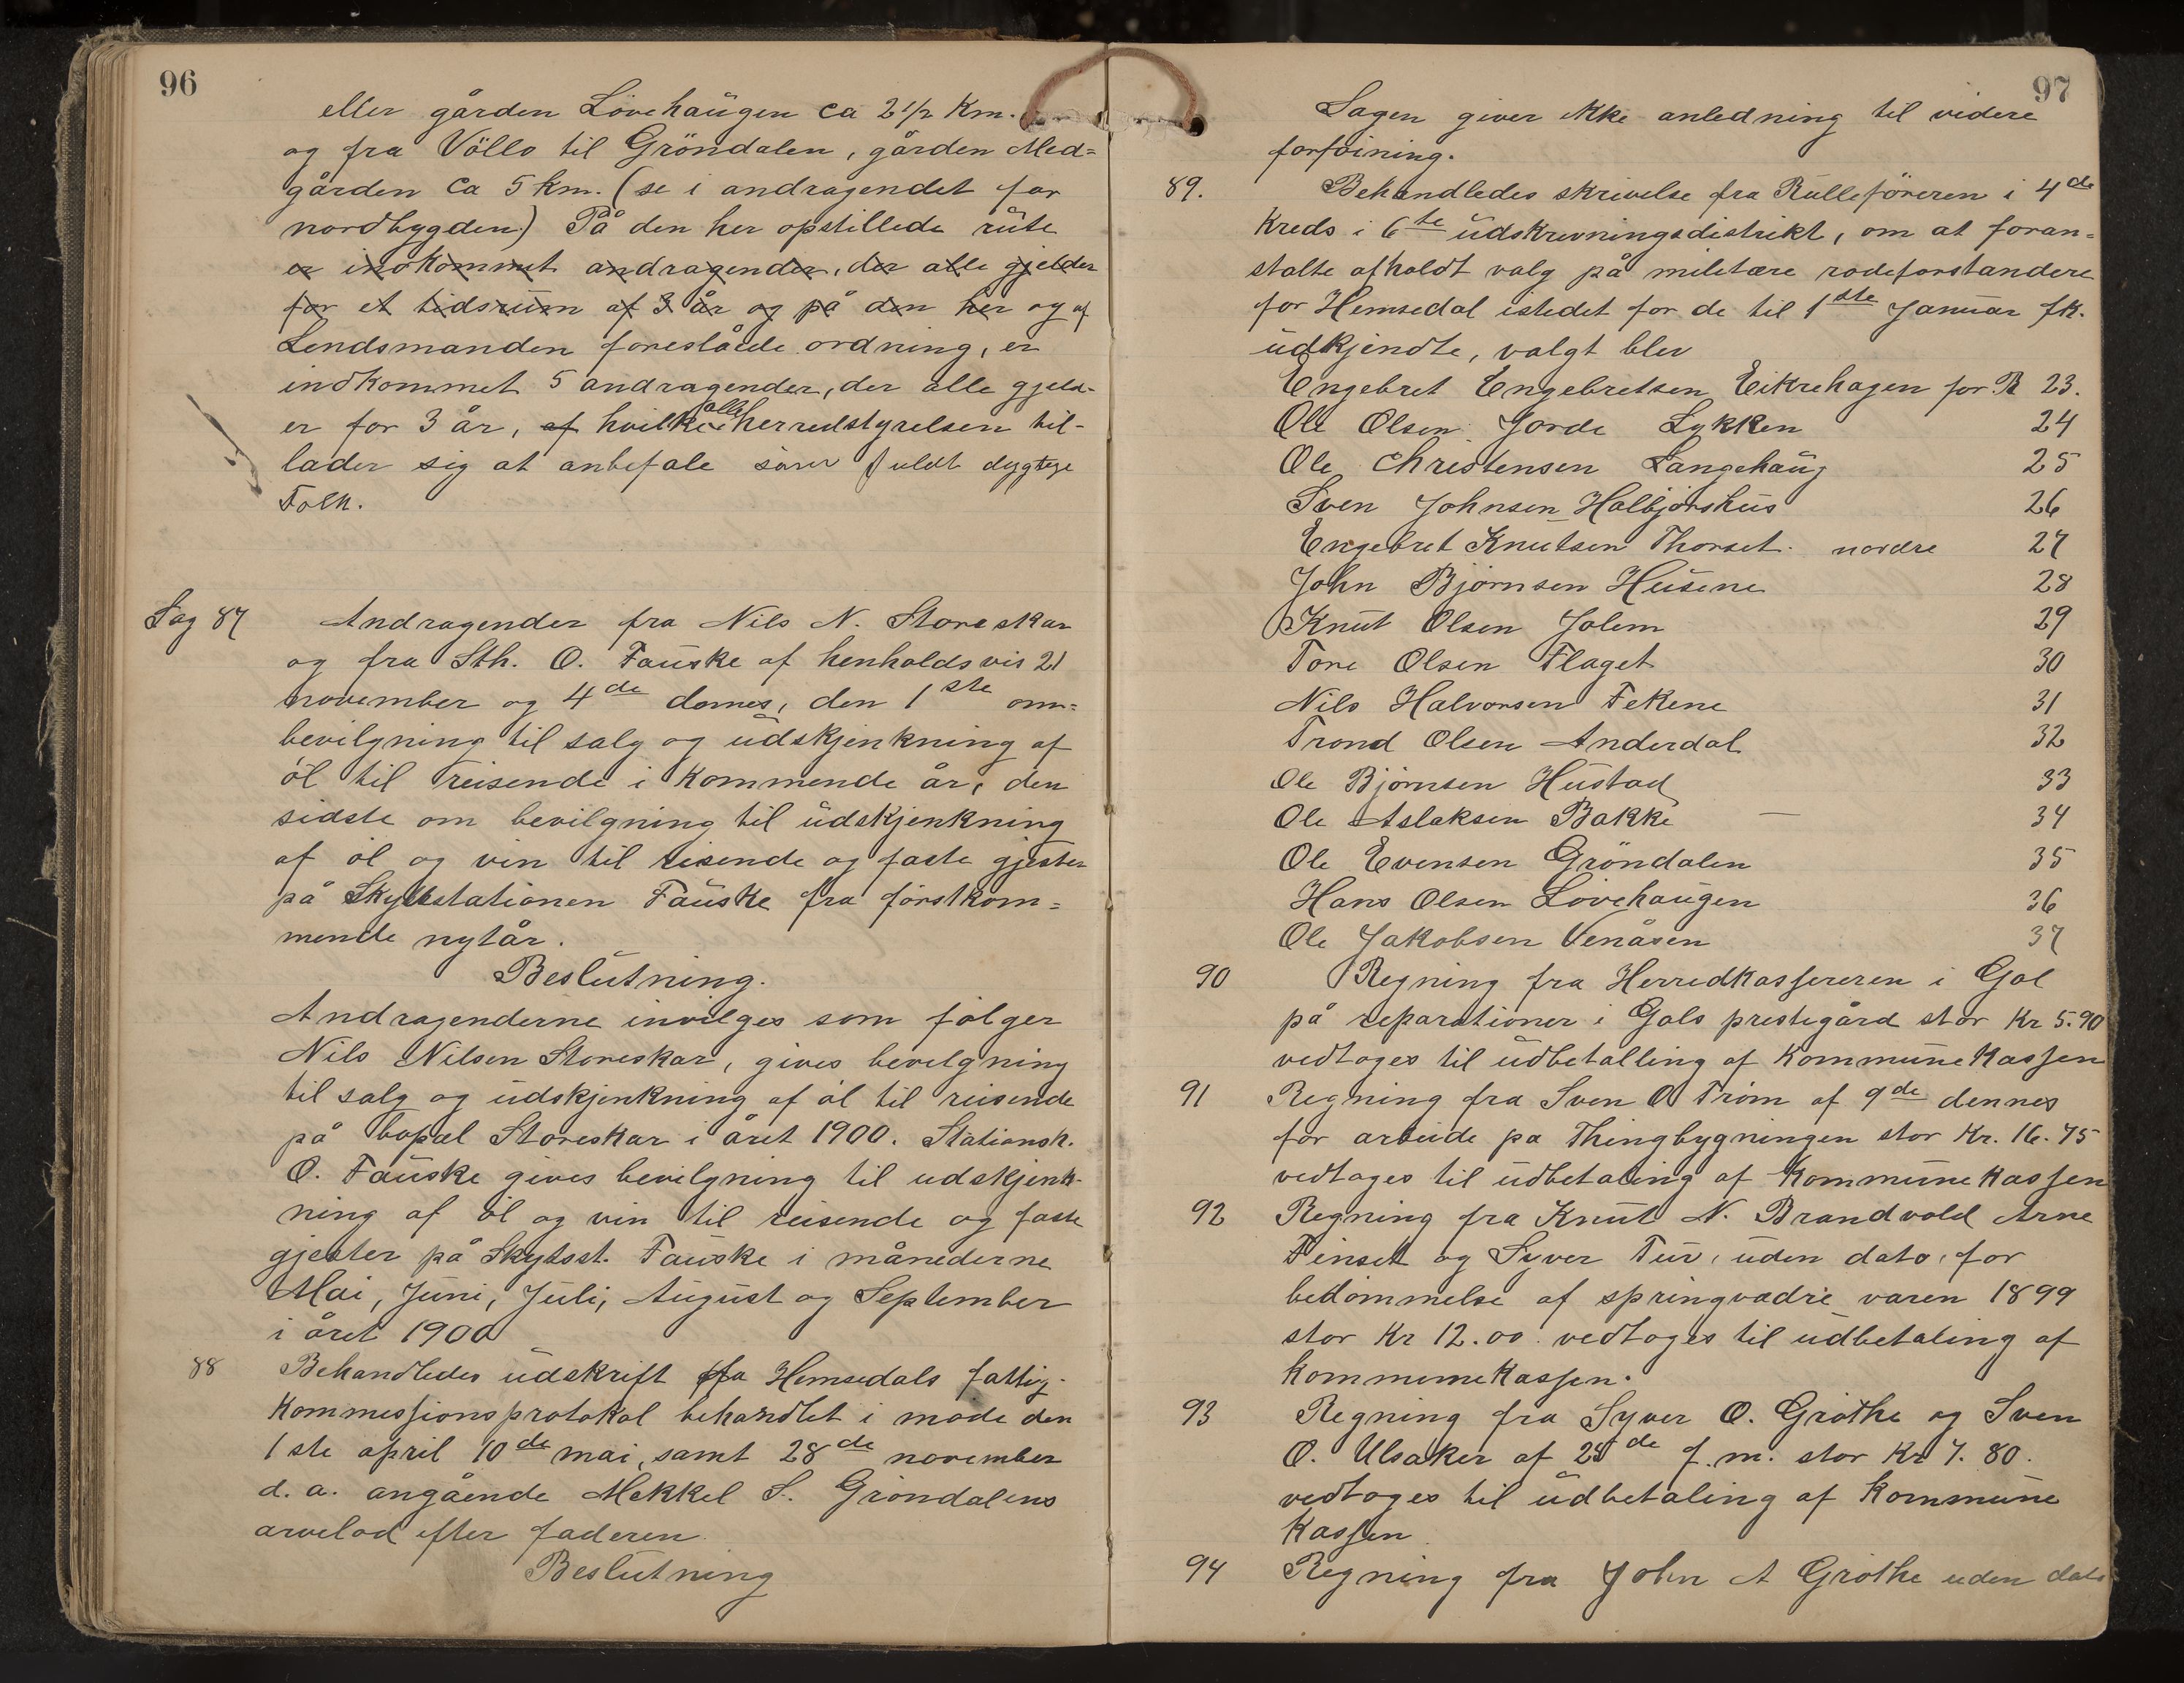 96
eller gården Lövehaugen ca 2 1/2 Km.
og fra Völlo til Gröndalen, gården Med=
gården ca 5 km. (se i andragendet for
nordbygden) På den her opstillede rute
er indkommet andragender, der alle gjelder
for et tidsrum af 3 år og på den her og af
Lendsmanden foreslåede ordning, er
indkommet 5 andragender, der alle gjeld-
er for 3 år, af hvilke alle herredstyrelsen til-
lader sig at anbefale som fuldt dygtige
Folk.
Sag 87 Andragender fra Nils N. Storeskar
og fra Sth. O. Fauske af henholdsvis 21
november og 4de dennes, den 1ste om=
bevilgning til salg og udskjenkning af
öl til reisende i kommende år, den
sidste om bevilgning til udskjenkning
af öl og vin til reisende og faste gjester
på Skydsstationen Fauske fra förstkom=
mende nytår.
Beslutning.
Andragenderne invilges som fölger
Nils Nilsen Storeskar, gives bevilgning
til salg og udskjenkning af öl til reisende
på bopæl Storeskar i året 1900. Stationsh.
O. Fauske gives bevilgning til udskjenk-
ning af öl og vin til reisende og faste
gjester på Skydsst. Fauske i månederne
Mai, Juni, Juli, August og September
i året 1900
88 Behandledes udskrift fra Hemsedals fattig-
kommessionsprotokol behandlet i möde den
1ste april 10de mai, samt 28de november
d. a. angående Mekkel S. Gröndalens
arvelod efter faderen.
Beslutning
97
Sagen giver ikke anledning til videre
forföining.
89. Behandledes skrivelse fra Rulleföreren i 4de
Kreds i 6te udskrivningsdistrikt, om at foran=
stalte afholdt valg på militære rodeforstandere
for Hemsedal istedet for de til 1ste Januar fk.
udkjendte, valgt blev
Engebret Engebretsen Eikrehagen for R 23.
Ole Olsen Jorde Lykken 24
Ole Christensen Langehaug 25
Sven Johnsen Halbjörshus 26
Engebret Knutsen Thorset nordre 27
John Björnsen Husene 28
Knut Olsen Jolem 29
Tore Olsen Flaget 30
Nils Halvorsen Fekene 31
Trond Olsen Anderdal 32
Ole Björnsen Hustad 33
Ole Aslaksen Bakke — 34
Ole Evensen Gröndalen 35
Hans Olsen Lövehaugen 36
Ole Jakobsen Venåsen 37
90 Regning fra Herredkassereren i Gol
på reparationer i Gols prestegård stor Kr 5.90
vedtoges til udbetalling af Kommunekassen
91 Regning fra Sven O Tröm af 9de dennes
for arbeide pa Thingbygningen stor Kr. 16.75
vedtages til udbetaling af Kommunekassen
92 Regning fra Knut N. Brandvold Arne
Finset og Syver Tuv, uden dato, for
bedömmelse af springvadre varen 1899
stor Kr 12.00 vedtoges til udbetaling af
kommunekassen.
93 Regning fra Syver O. Gröthe og Sven
O. Ulsaker af 28de f. m. stor Kr 7.80.
vedtoges til udbetaling af Kommune
Kassen
94 Regning fra John A Gröthe uden dato